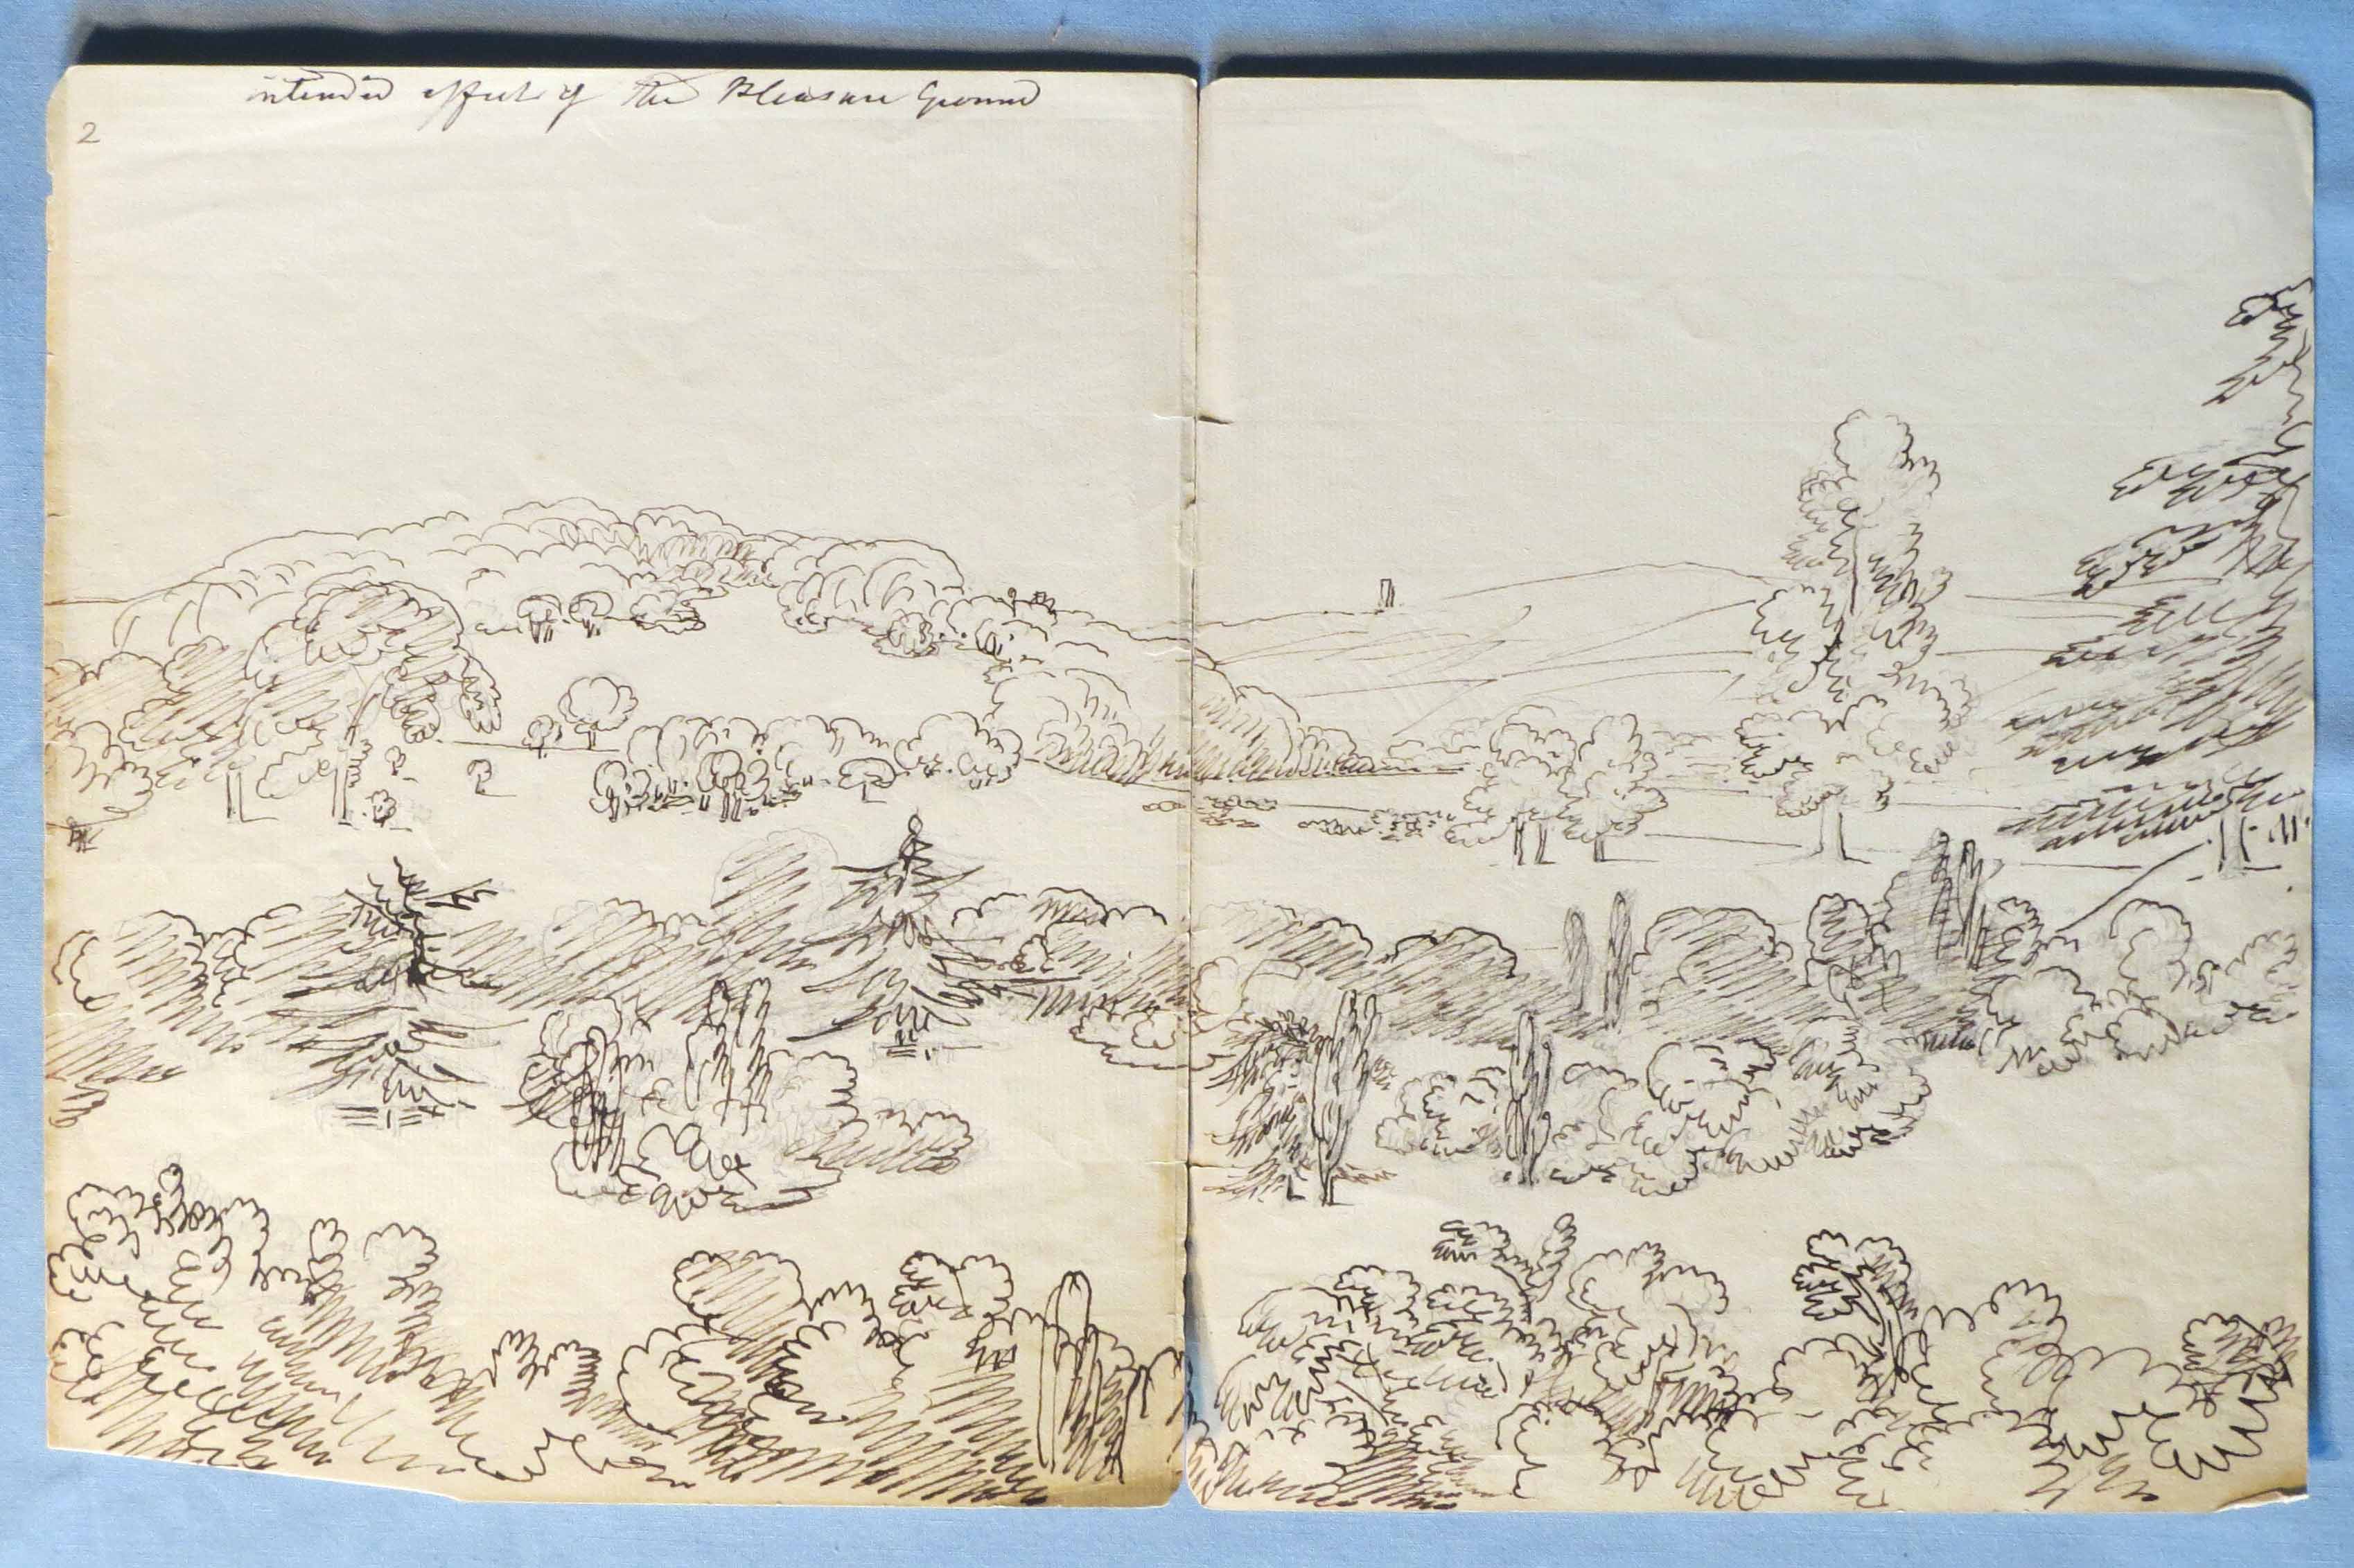 intended effect of the Pleasure Ground
2